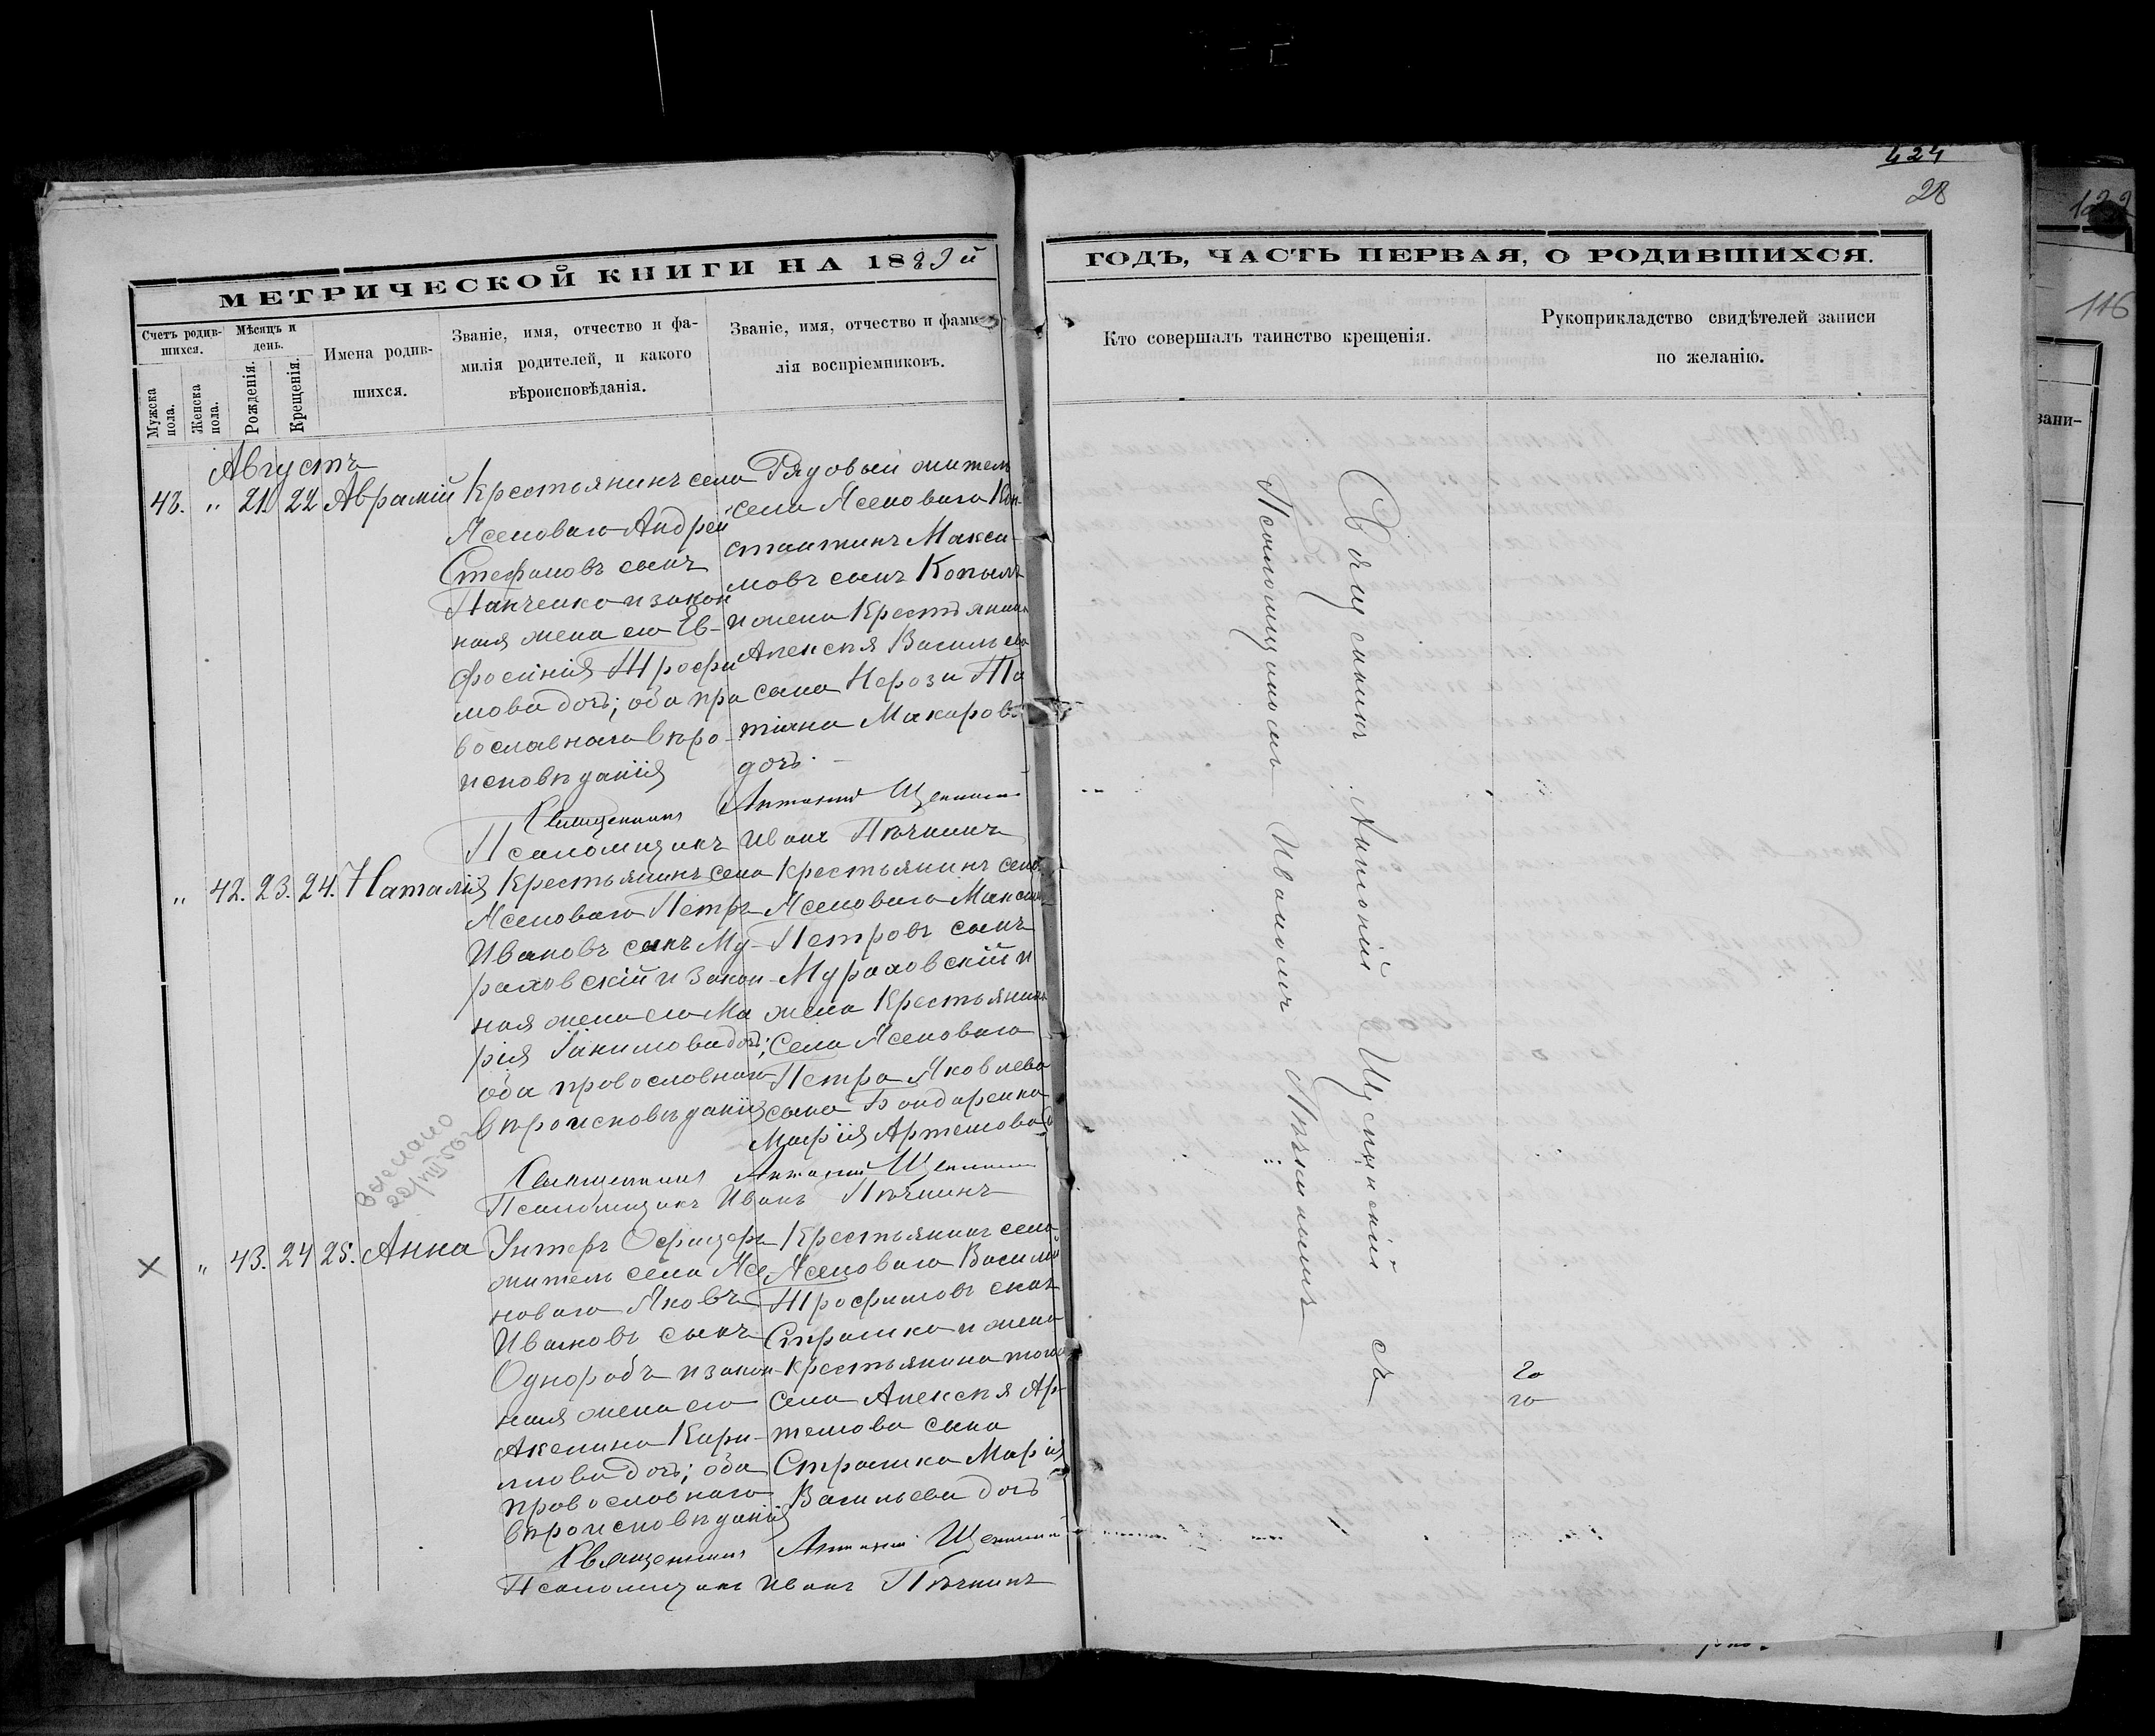 424
28
122
116
МЕТРИЧЕСКОЙ КНИГИ НА 1889й
ГОДЪ, ЧАСТЬ ПЕРВАЯ, О РОДИВШИХСЯ.
Счетъ родив-
шихся.
Мѣсяцъ и
день.
Мужска
пола.
Женска
пола.
Рожденія.
Крещенія.
Имена родив-
шихся.
Званіе, имя, отчество и фа-
милія родителей, и какого
вѣроисповѣданія.
Званіе, имя, отчество и фами-
лія воспріемниковъ.
Кто совершалъ таинство крещенія.
Рукоприкладство свидѣтелей записи
по желанію.
зани-
Августъ
48. " 21. 22 Аврамій
Крестьянинъ села
Ясеноваго Андрей
Стефановъ сынъ
Панченко и закон
ная жена его Ев-
фосинія Трофи
мова дочь; оба пра
вославнаго вѣро-
исповѣданія
Рядовый житель
села Ясеноваго Кон-
стантинъ Макси-
мовъ сынъ Копылъ
и жена Крестьянина
Алексѣя Васильева
сына Нерози Та
тіана Макарова
дочь.
Священникъ Антоній
Псаломщикъ Иванъ Пѣчкинъ
" 42. 23. 24. Наталія
Крестьянинъ села
Ясеноваго Петръ
Ивановъ сынъ Му-
раховскій и закон-
ная жена его Ма
рія Іакимова дочь;
оба православнаго
вѣроисповѣданія
Крестьянинъ села
Ясеноваго Максимъ
Петровъ сынъ
Мураховскій и
жена Крестьянина
села Ясеноваго
Петра Яковлева
сына Бондаренка
Марія Артемова д
Священникъ Антоній
Псаломщикъ Иванъ Пѣчкинъ
22/VIII 56
× " 43. 24 25. Анна
Унтеръ Офицеръ
житель села Ясе-
новаго Яковъ
Ивановъ сынъ
Однорабъ и закон-
ная жена его
Акелина Кири-
лова дочь; оба
православнаго
вѣроисповѣданія
Крестьянинъ села
Ясеноваго Василій
Трофимовъ сынъ
Страшко и жена
Крестьянина того
села Алексѣя Ар-
темова сына
Страшка Марія
Васильева дочь
Священникъ Антоній
Псаломщикъ Иванъ Пѣчкинъ
Священникъ Антоній съ
Псаломщикомъ Иваномъ Пѣчкинымъ
20
20